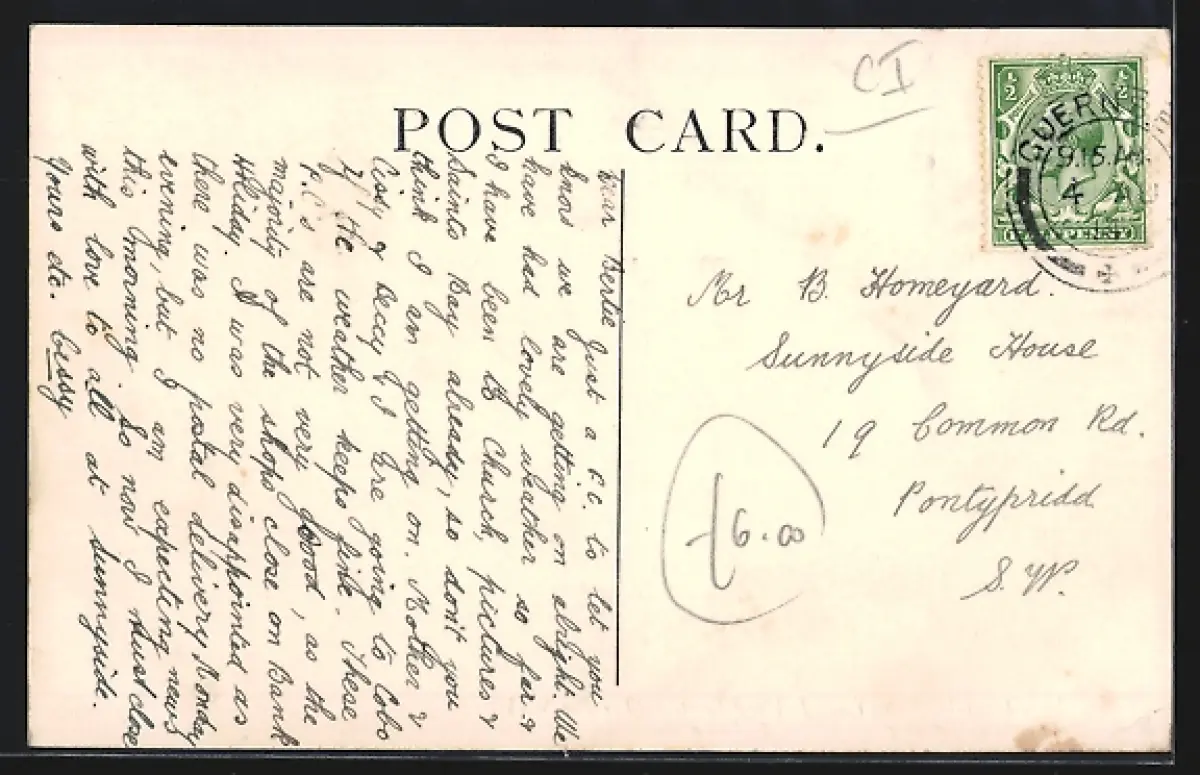 POST CARD.
CI
½ ½
GUERN
9.15 AM
4
Dear Bertie Just a P.C. to let you
know we are getting on alright. We
have had lovely weather so far &
I have been to Church, pictures &
Saints Bay already, so don't you
think I am getting on. Mother &
Cissy & I are going to Cobo
if the weather keeps fine. These
P.C's are not very good, as the
majority of the shops close on Bank
Holiday. I was very disappointed as
there was no postal delivery Monday
evening, but I am expecting news
this morning So now I must close
with love to all at Sunnyside.
Yours etc. Cissy
Mr B. Homeyard.
Sunnyside House
19 Common Rd.
Pontypridd
S. W.
£6.00